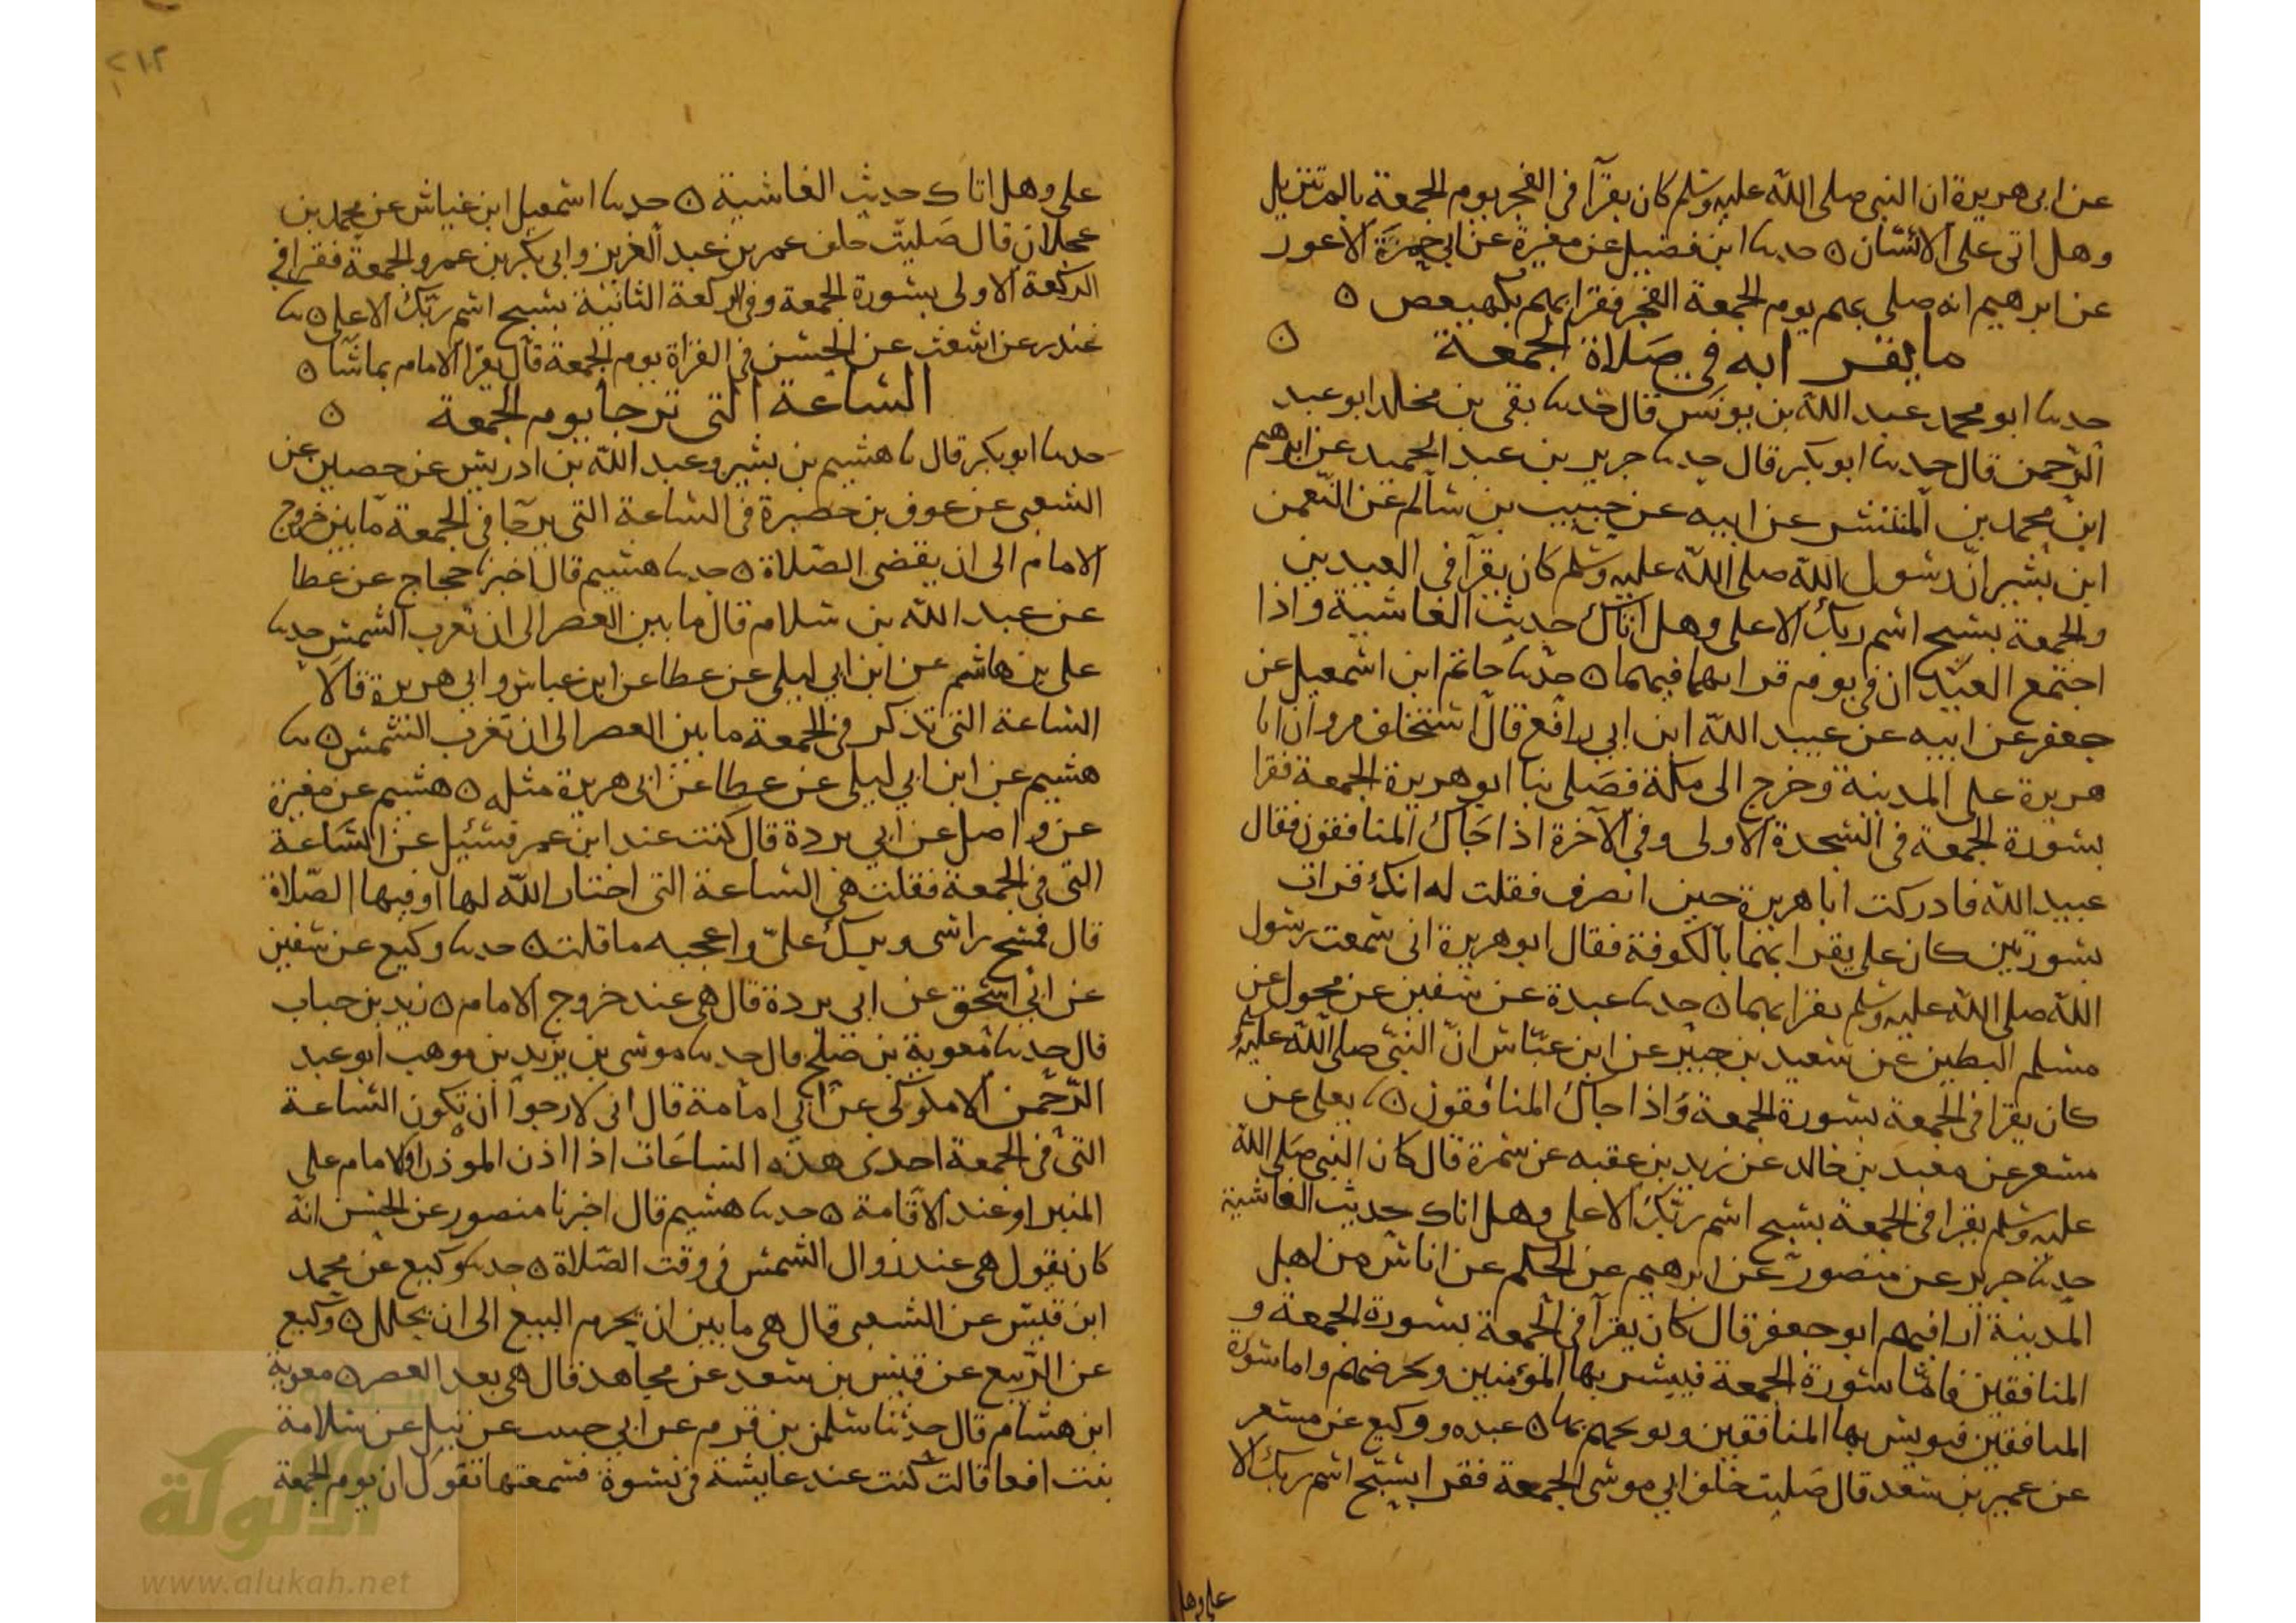 عن ابى هريرة ان النبى صلى الله عليه وسلم كان يقرآ فى الفجر يوم الجمعة بالم تنزيل
وهل اتى على الانسان ه حدثنا ابن فضيل عن مغيرة عن ابي حمزة الاعور
عن ابرهيم انه صلى بهم يوم الجمعة الفجر فقرا بهم بكهيعص ه
ما يقرا به في صلاة الجمعة ه
حدثنا ابو محمد عبد الله بن يونس قال حدثنا بقى بن مخلد ابو عبد
الرحمن قال حدثنا ابو بكر قال حدثنا جرير بن عبد الحميد عن ابرهيم
ابن محمد بن المنتشر عن ابيه عن حبيب بن سالم عن النعمن
ابن بشير ان رسول الله صلى الله عليه وسلم كان يقرآ فى العيدين
والجمعة بسبح اسم ربك الاعلى وهل اتاك حديث الغاشية واذا
اجتمع العيدان فى يوم قرا بهما فيهما ه حدثنا حاتم ابن اسمعيل عن
جعفر عن ابيه عن عبيد الله ابن ابي رافع قال استخلف مروان ابا
هريرة على المدينة وخرج الى مكة فصلى بنا ابو هريرة الجمعة فقرا
بسورة الجمعة فى السجدة الاولى وفى الآخرة اذا جاك المنافقون فقال
عبيد الله فادركت ابا هريرة حين انصرف فقلت له انك قرات
بسورتين كان على يقرا بهما بالكوفة فقال ابو هريرة انى سمعت رسول
الله صلى الله عليه وسلم يقرا بهما ه حدثنا عبدة عن سفين عن مخول عن
مسلم البطين عن سعيد بن جبير عن ابن عباس ان النبى صلى الله عليه وسلم
كان يقرا فى الجمعة بسورة الجمعة واذا جاك المنافقون ه يعلى عن
مسعر عن معبد بن خالد عن زيد بن عقبه عن سمرة قال كان النبى صلى الله
عليه وسلم يقرا فى الجمعة بسبح اسم ربك الاعلى وهل اتاك حديث الغاشية
حدثنا جرير عن منصور عن ابرهيم عن الحكم عن اناس من اهل
المدينة ارا فيهم ابو جعفر قال كان يقرآ فى الجمعة بسورة الجمعة و
المنافقين فاما سورة الجمعة فيبشر بها المؤمنين ويحرضهم واما سورة
المنافقين فيويس بها المنافقين ويوبخهم بها ه عبده ووكيع عن مسعر
عن عمير بن سعد قال صليت خلف ابي موسى الجمعة فقرا بسبح اسم ربك الا
على وهل
٢١٢
على وهل اتاك حديث الغاشية ه حدثنا اسمعيل ابن عياش عن محمد بن
عجلان قال صليت خلف عمر بن عبد العزيز وابى بكر بن عمرو الجمعة فقرا في
الركعة الاولى بسورة الجمعة وفى الركعة الثانية بسبح اسم ربك الاعلى ه نا
غندر عن اشعث عن الحسن فى القراة يوم الجمعة قال يقرا الامام بما شا ه
الساعة التى ترجا يوم الجمعة ه
حدثنا ابو بكر قال نا هشيم بن بشير وعبد الله بن ادريس عن حصين عن
الشعبى عن عوف بن حصيرة فى الساعة التى ترجا فى الجمعة ما بين خروج
الامام الى ان يقضى الصلاة ه حدثنا هشيم قال اخبرنا حجاج عن عطا
عن عبد الله بن سلام قال ما بين العصر الى ان تغرب الشمس حدثنا
على بن هاشم عن ابن ابي ليلى عن عطا عن ابن عباس وابي هريرة قالا
الساعة التى تذكر فى الجمعة ما بين العصر الى ان تغرب الشمس ه نا
هشيم عن ابن ابي ليلى عن عطا عن ابى هريرة مثله ه هشيم عن مغيرة
عن واصل عن ابي بردة قال كنت عند ابن عمر فسئيل عن الساعة
التى فى الجمعة فقلت هى الساعة التى اختار الله لها او فيها الصلاة
قال فمسح راسى وبرك على واعجبه ما قلت ه حدثنا وكيع عن سفين
عن ابي اسحق عن ابى بردة قال هى عند خروج الامام ه زيد بن حباب
قال حدثنا معوية بن صلح قال حدثنا موسى بن يزيد بن موهب ابو عبد
الرحمن الاملوكي عن ابي امامة قال انى لارجوا ان تكون الساعة
التى فى الجمعة احدى هذه الساعات اذا اذن الموذن او الامام على
المنبر او عند الاقامة ه حدثنا هشيم قال اخبرنا منصور عن الحسن انه
كان يقول هى عند زوال الشمس فى وقت الصلاة ه حدثنا وكيع عن محمد
ابن قيس عن الشعبى قال هى ما بين ان يحرم البيع الى ان يحلل ه وكيع
عن الربيع عن قيس بن سعد عن مجاهد قال هى بعد العصر ه معوية
ابن هشام قال حدثنا سلمن بن قرم عن ابي حبيب عن نبيل عن سلامة
بنت افعا قالت كنت عند عايشة فى نسوة فسمعتها تقول ان يوم الجمعة
الألوكة
www.alukah.net